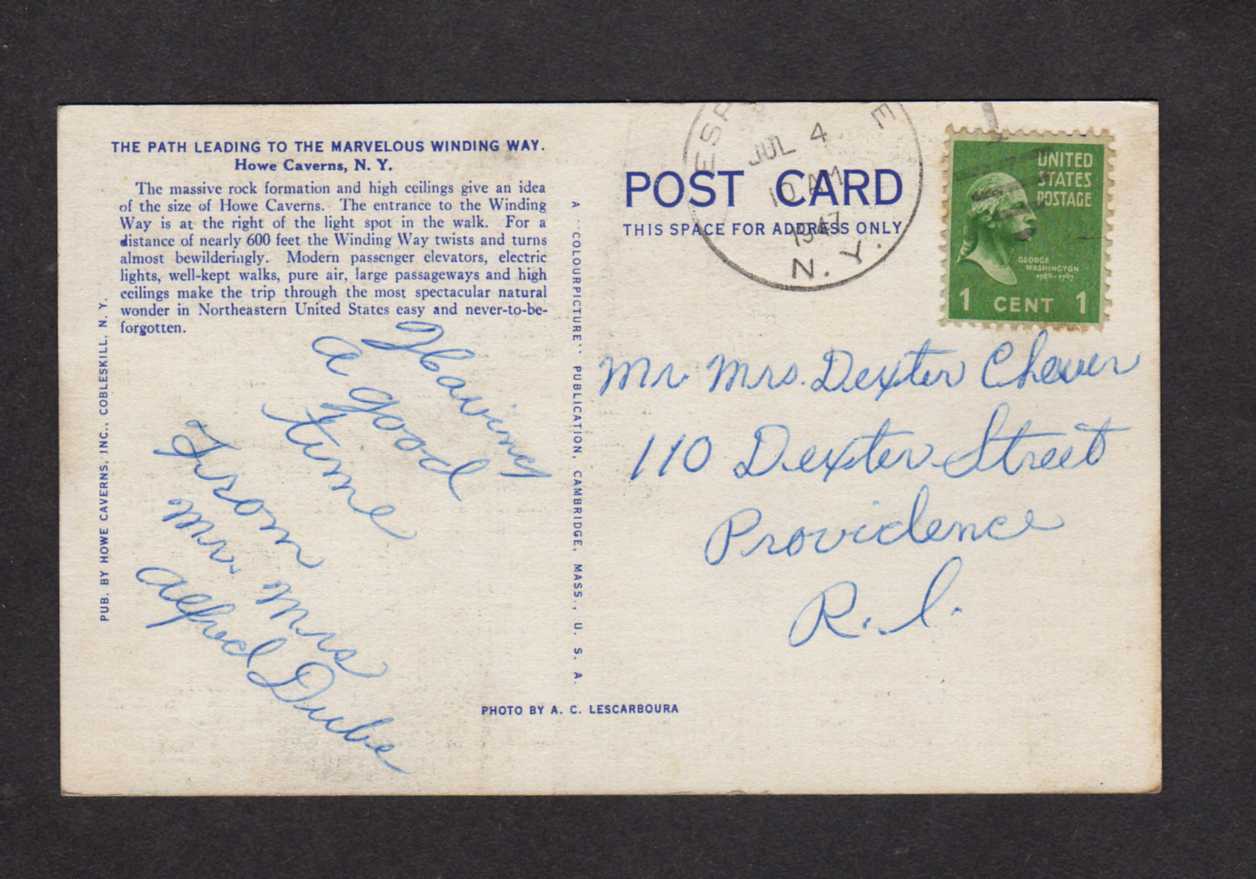 THE PATH LEADING TO THE MARVELOUS WINDING WAY.
Howe Caverns, N. Y.
The massive rock formation and high ceilings give an idea
of the size of Howe Caverns. The entrance to the Winding
Way is at the right of the light spot in the walk. For a
distance of nearly 600 feet the Winding Way twists and turns
almost bewilderingly. Modern passenger elevators, electric
lights, well-kept walks, pure air, large passageways and high
ceilings make the trip through the most spectacular natural
wonder in Northeastern United States easy and never-to-be-
forgotten.
PUB. BY HOWE CAVERNS, INC., COBLESKILL, N. Y.
Having
a good
time
From
Mr. Mrs
Alfred Dube
A "COLOURPICTURE" PUBLICATION, CAMBRIDGE, MASS., U. S. A.
PHOTO BY A. C. LESCARBOURA
POST CARD
THIS SPACE FOR ADDRESS ONLY
JUL 4
10 AM
1947
N. Y.
UNITED
STATES
POSTAGE
GEORGE
WASHINGTON
1789-1797
1 CENT 1
Mr Mrs. Dexter Chever
110 Dexter Street
Providence
R. I.